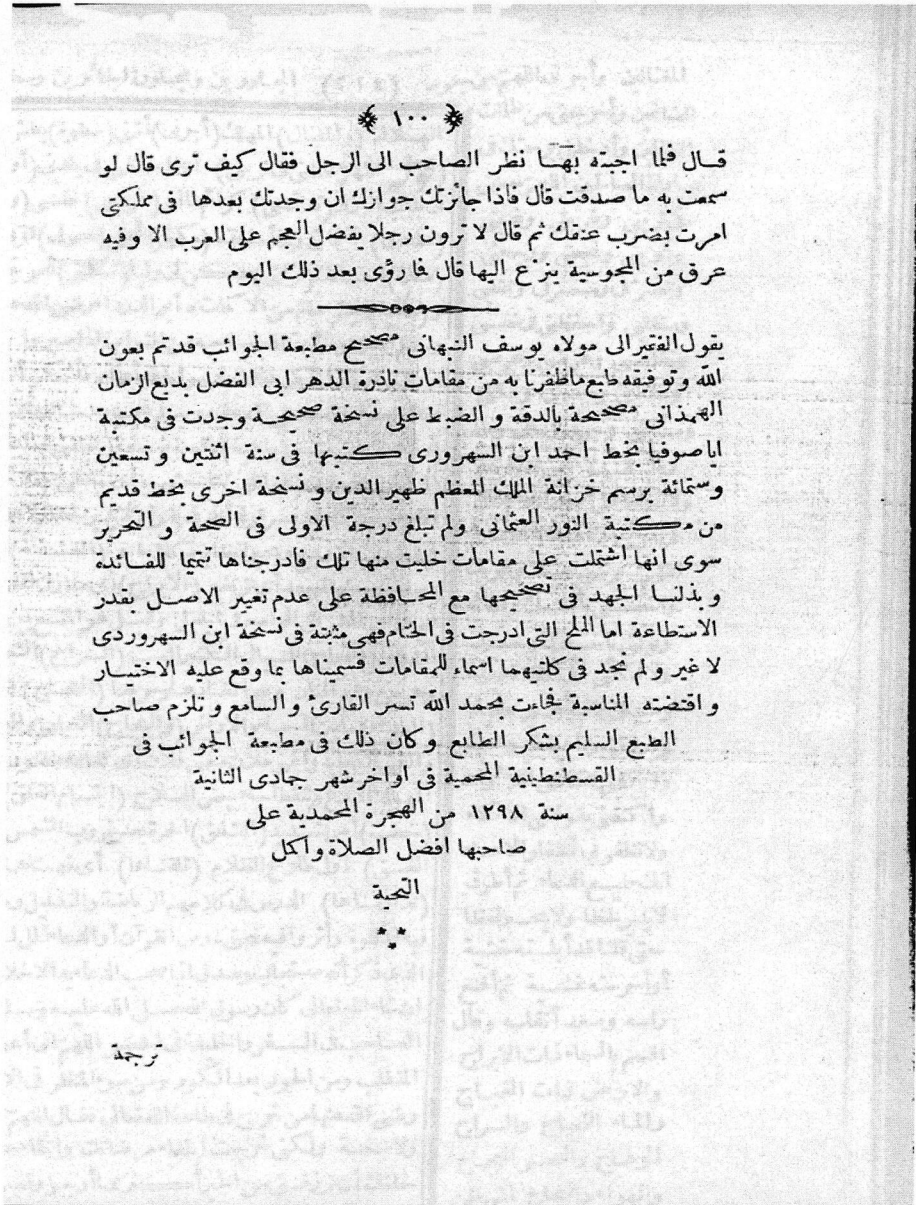 ﴿ ١٠٠ ﴾
قال فلما اجبته بهتا نظر الصاحب الى الرجل فقال كيف ترى قال لو
سمعت به ما صدقت قال فاذا جائزتك جوازك ان وجدتك بعدها فى مملكتى
امرت بضرب عنقك ثم قال لا ترون رجلا يفضل العجم على العرب الا وفيه
عرق من المجوسية ينزع اليها قال فا رؤى بعد ذلك اليوم
يقول الفقير الى مولاه يوسف النبهانى مصحح مطبعة الجوائب قد تم بعون
الله وتوفيقه طبع ماظفرنا به من مقامات نادرة الدهر ابى الفضل بديع الزمان
الهمذانى مصححة بالدقة و الضبط على نسخة صحيحة وجدت فى مكتبة
اياصوفيا بخط احمد ابن السهرورى كتبها فى سنة اثنتين و تسعين
وستمائة برسم خزانة الملك المعظم ظهير الدين و نسخة اخرى بخط قديم
من مكتبة النور العثمانى ولم تبلغ درجة الاولى فى الصحة و التحرير
سوى انها اشتملت على مقامات خليت منها تلك فادرجناها تتميما للفائدة
و بذلنا الجهد فى تصحيحها مع المحافظة على عدم تغيير الاصل بقدر
الاستطاعة اما الملح التى ادرجت فى الختام فهى مثبتة فى نسخة ابن السهروردى
لا غير ولم نجد فى كلتيهما اسماء للمقامات فسميناها بما وقع عليه الاختيار
و اقتضته المناسبة فجاءت بحمد الله تسر القارئ و السامع و تلزم صاحب
الطبع السليم بشكر الطابع وكان ذلك فى مطبعة الجوائب فى
القسطنطينية المحمية فى اواخر شهر جمادى الثانية
سنة ١٢٩٨ من الهجرة المحمدية على
صاحبها افضل الصلاة واكمل
التحية
ترجمة